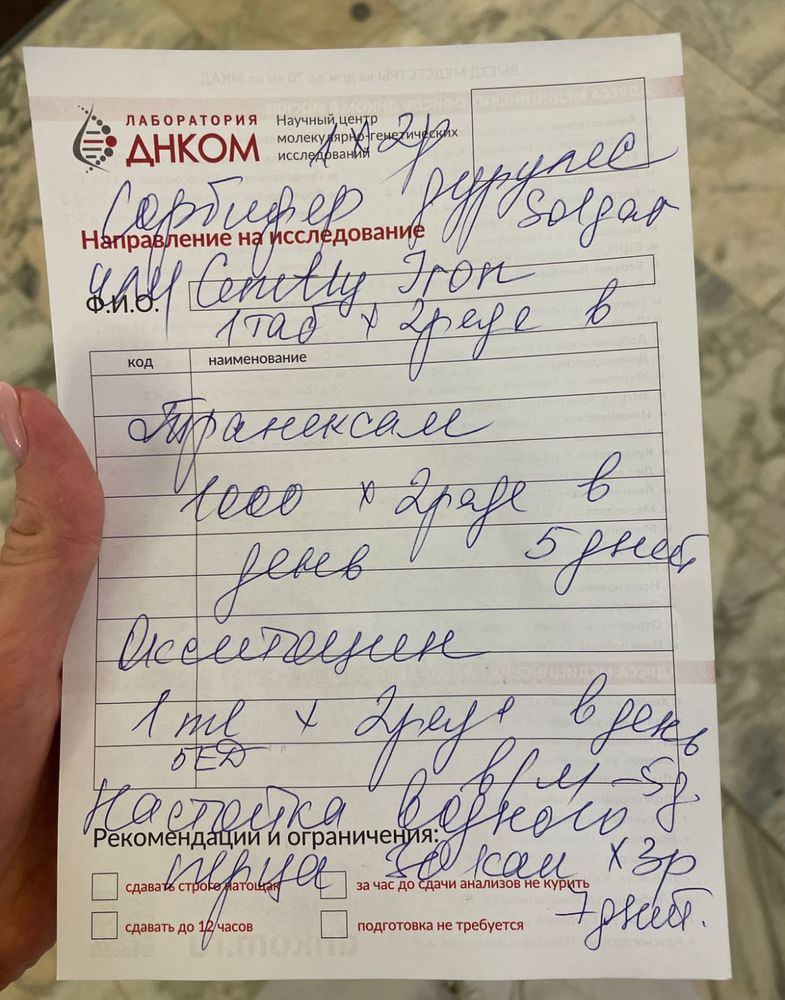 ЛАБОРАТОРИЯ
ДНКОМ
Научный центр
молекулярно-генетических
исследований
x 2р
Сорбифер дурулес
Solgar
Направление на исследование
или Gently Iron
Ф.И.О.
1 таб x 2 раза в
код наименование
Транексам
1000 x 2 раза в
день 5 дней
Окситоцин
1 ml x 2 раза в день
5 ЕД в/м - 5 д.
Настойка водного
Рекомендации и ограничения:
перца 30 кап x 3р
сдавать строго натощак за час до сдачи анализов не курить
7 дней.
сдавать до 12 часов подготовка не требуется